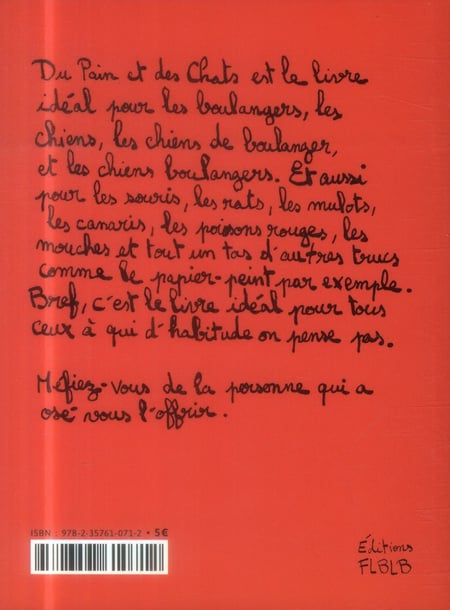 Du Pain et des Chats est le livre
idéal pour les boulangers, les
chiens, les chiens de boulanger,
et les chiens boulangers. Et aussi
pour les souris, les rats, les mulots,
les canaris, les poissons rouges, les
mouches et tout un tas d'autres trucs
comme le papier-peint par exemple.
Bref, c'est le livre idéal pour tous
ceux à qui d'habitude on pense pas.
Méfiez-vous de la personne qui a
osé vous l'offrir.
ISBN : 978-2-35761-071-2 • 5€
Éditions
FLBLB